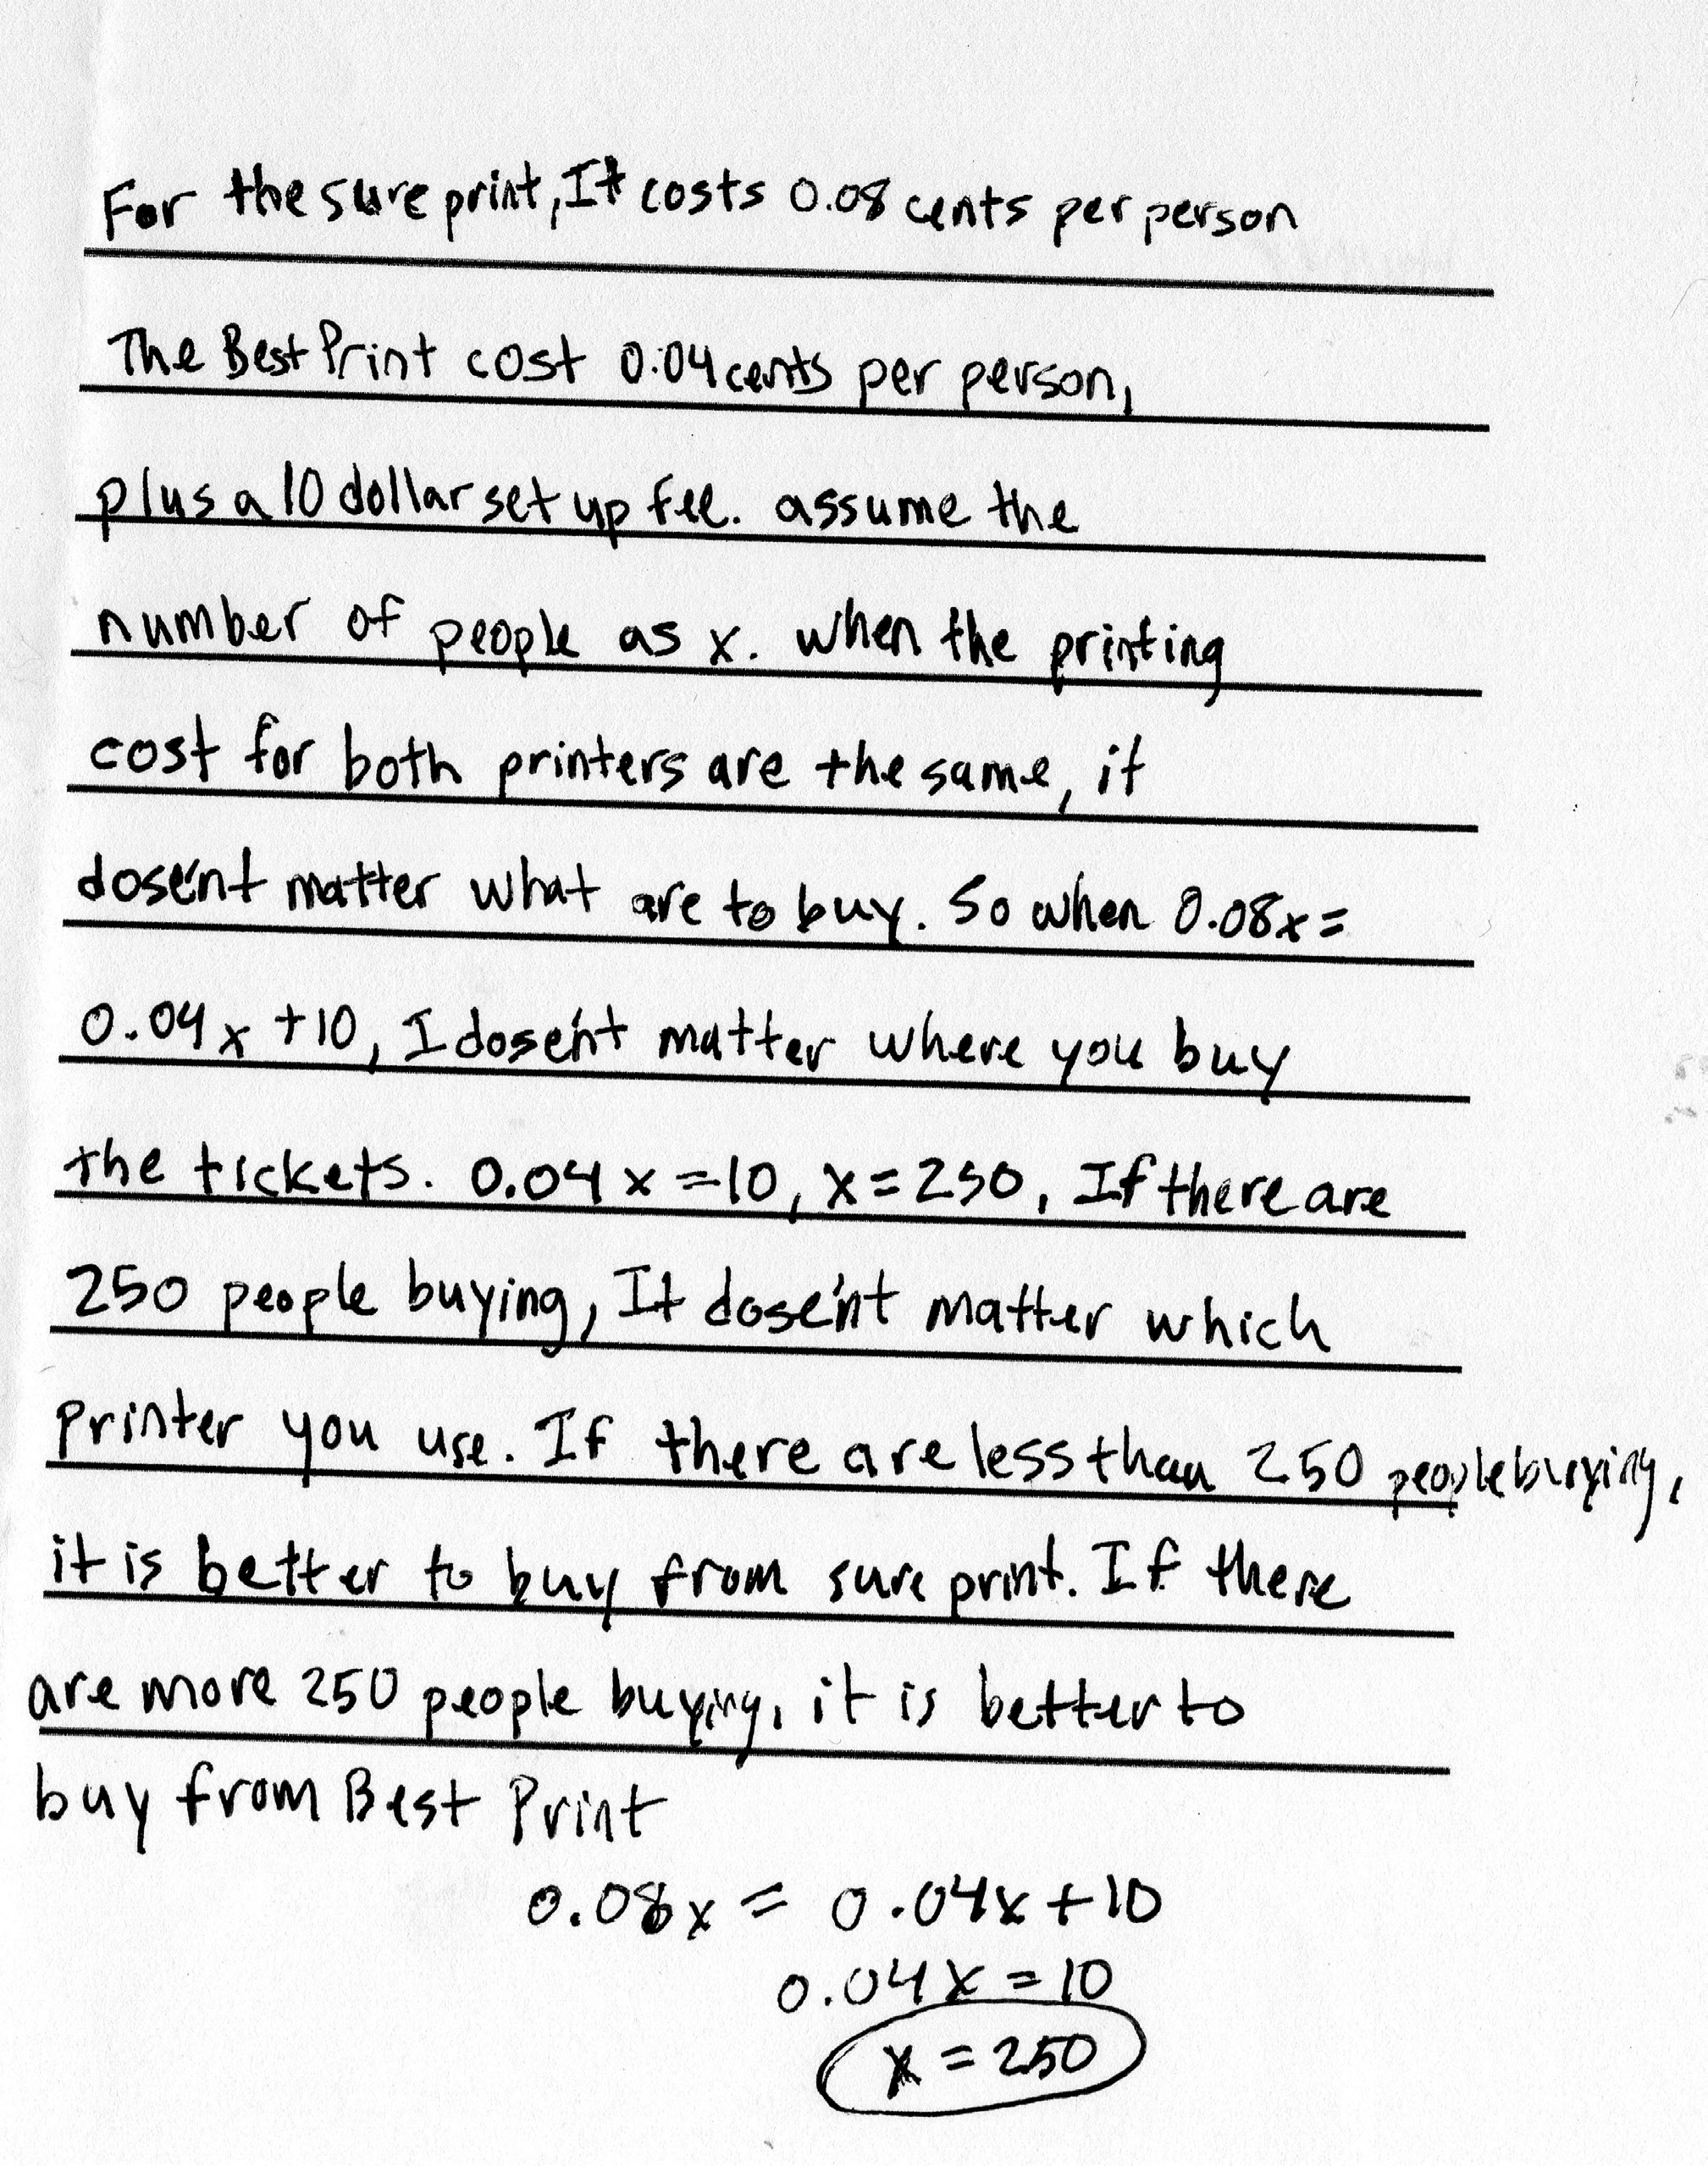 For the sure print, It costs 0.08 cents per person
The Best Print cost 0.04 cents per person,
plus a 10 dollar set up fee. assume the
number of people as x. when the printing
cost for both printers are the same, it
dosen't matter what are to buy. So when 0.08x =
0.04x +10, I dosen't matter where you buy
the tickets. 0.04x =10, x=250, If there are
250 people buying, It dosen't matter which
printer you use. If there are less than 250 people buying,
it is better to buy from sure print. If there
are more 250 people buying, it is better to
buy from Best Print
0.08x = 0.04x +10
0.04x = 10
x = 250